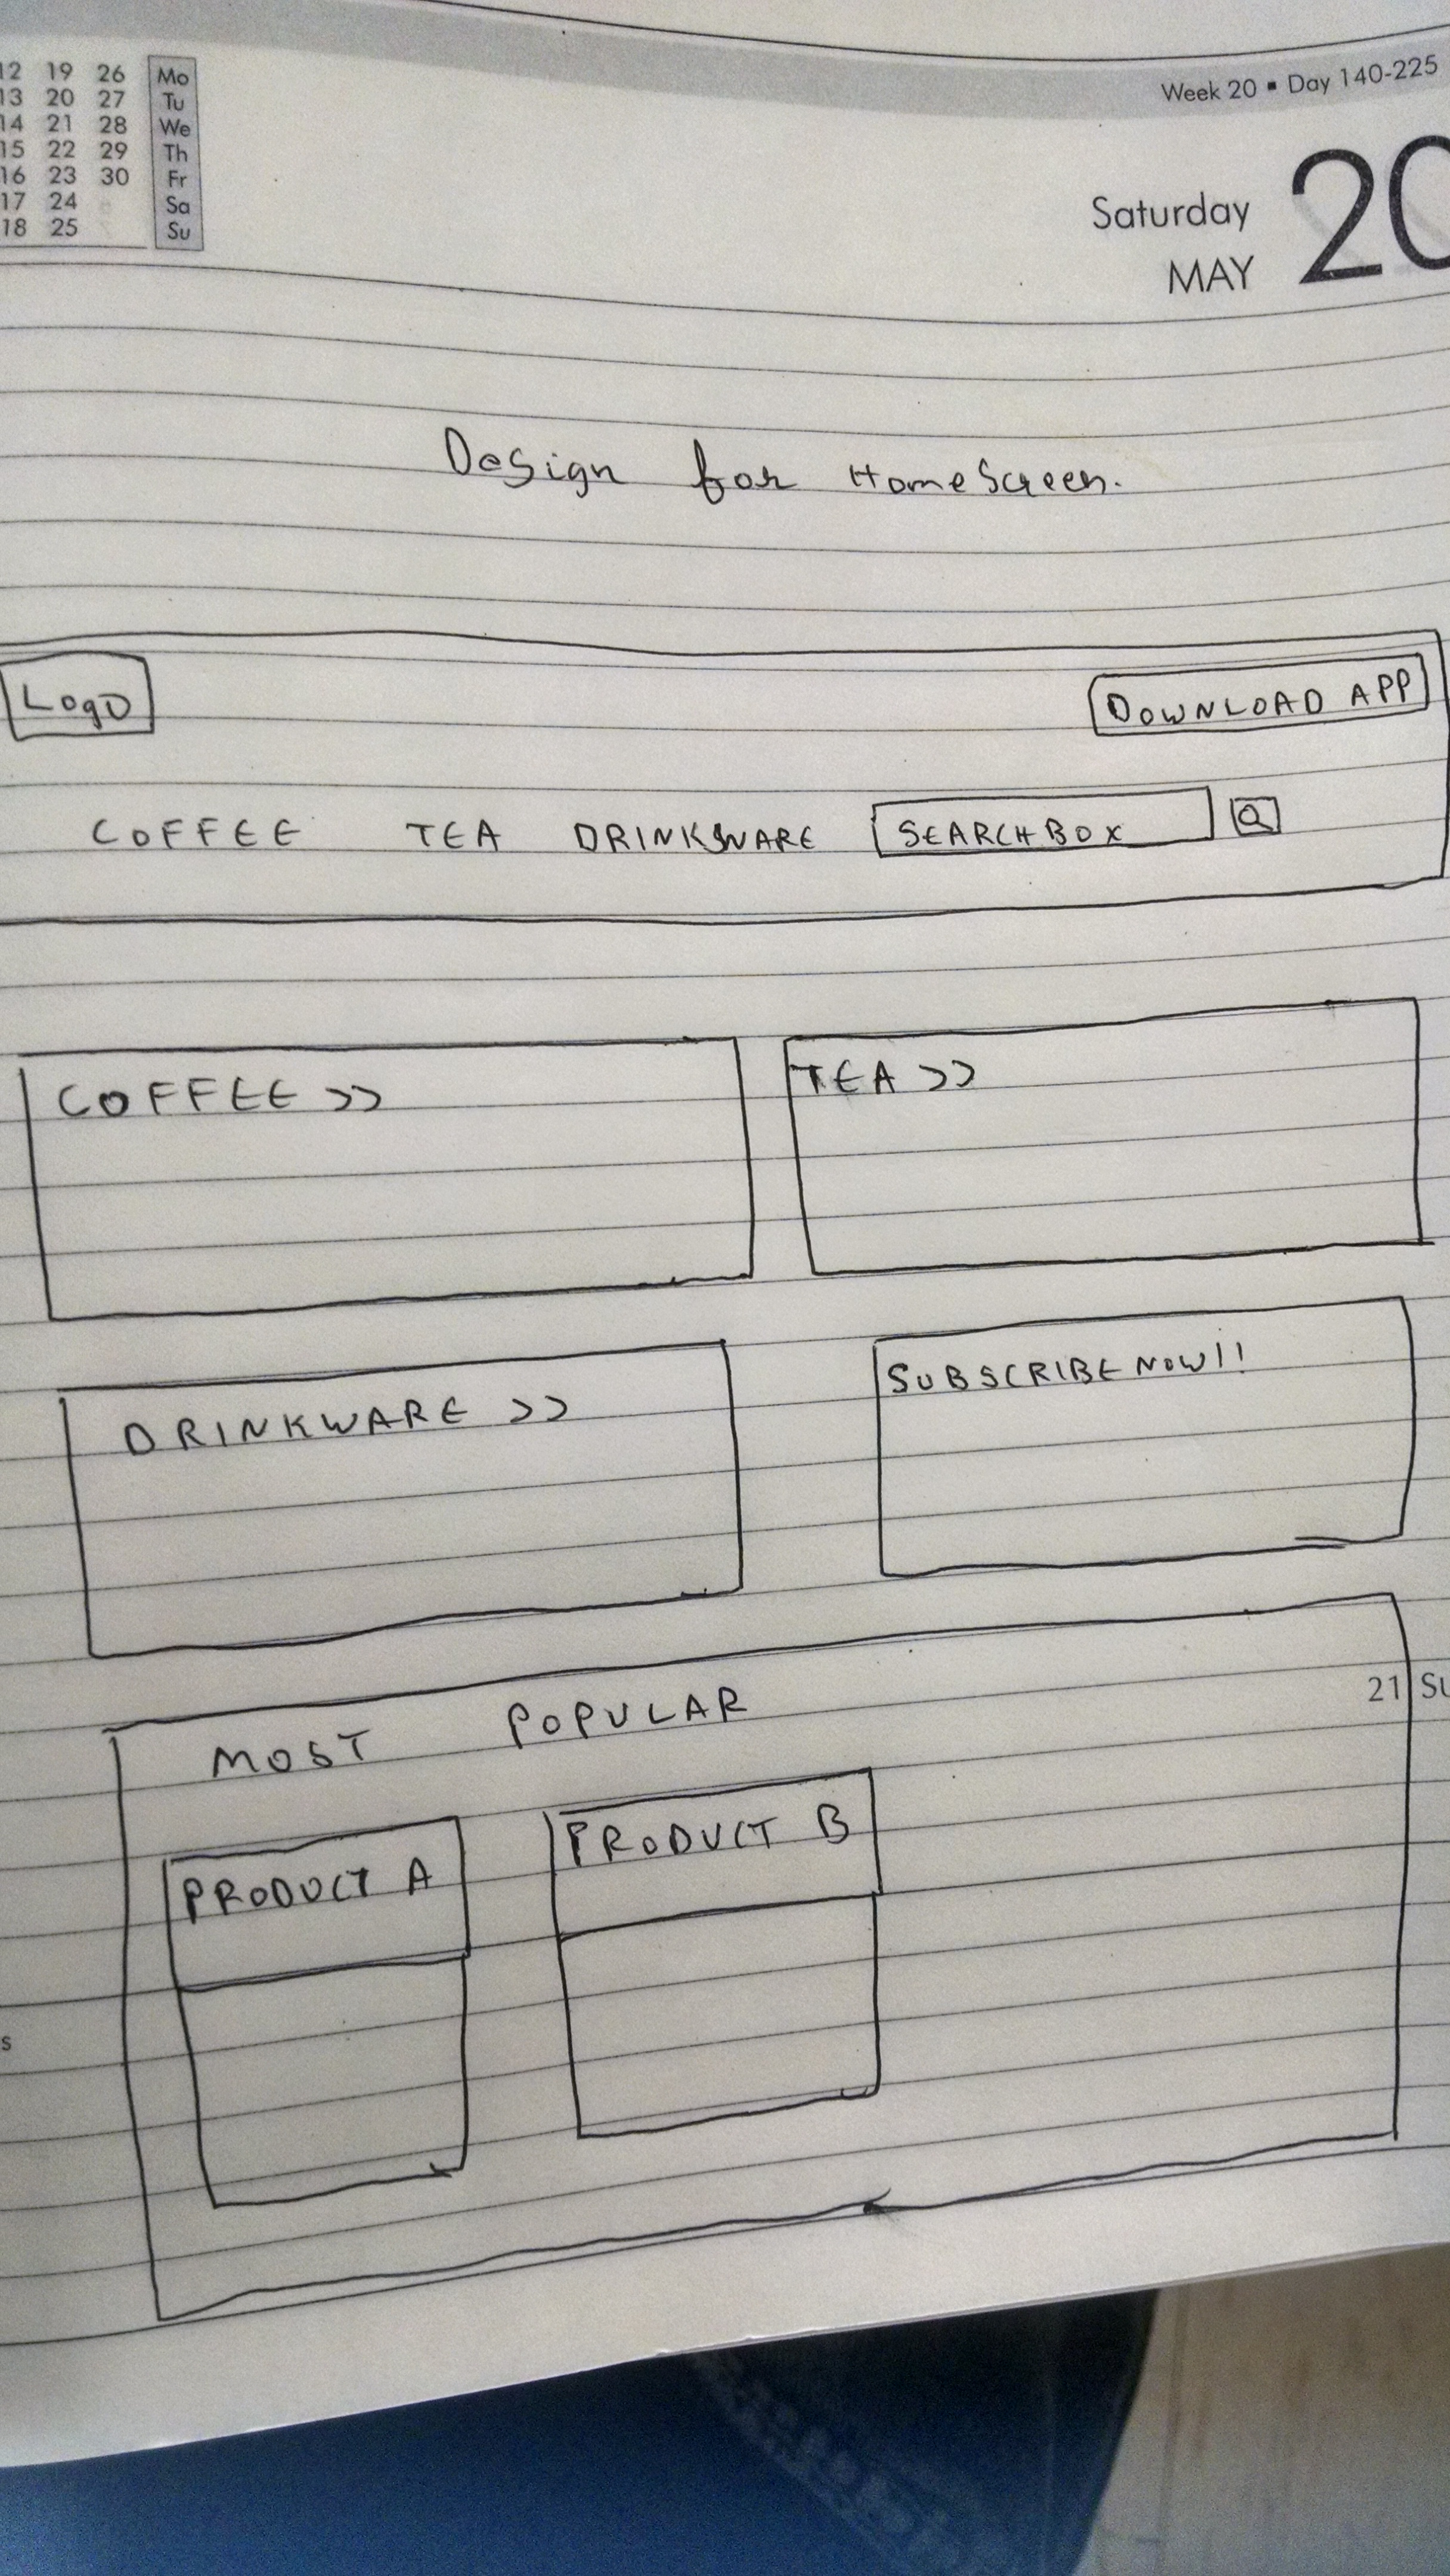 12 19 26 Mo
13 20 27 Tu
14 21 28 We
15 22 29 Th
16 23 30 Fr
17 24 Sa
18 25 Su
Week 20 ▪ Day 140-225
Saturday 20
MAY
Design for HomeScreen.
Logo DOWNLOAD APP
COFFEE TEA DRINKSWARE SEARCHBOX
COFFEE >> TEA >>
DRINKWARE >> SUBSCRIBE NOW!!
21 Su
MOST POPULAR
PRODUCT A PRODUCT B
s